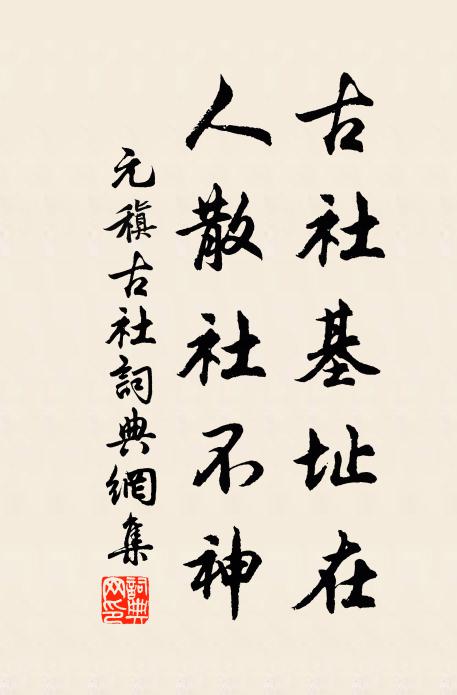 古社基址在
人散社不神
元稹古社詞典網集
詞典网印